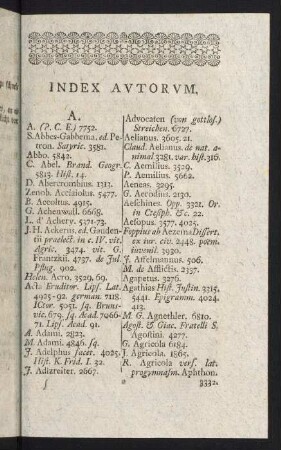 INDEX AVTORVM.
A.
A. (P. C. E.) 7752.
S. Abbes-Gabbema, ed. Pe-
tron. Satyric. 3581.
Abbo. 5842.
C. Abel. Brand. Geogr.
5813. Hist. 14.
D. Abercrombius. 1311.
Zenob. Acciaiolus. 5477.
B. Accoltus. 4915.
G. Achenwall. 6668.
L. d'Achery. 571-73.
J. H. Ackerus, ed. Gauden-
tii praelect. in c. IV. vit.
Agric. 3474. vit. G.
Frantzkii. 4737. de Jul.
Pflug. 902.
Helen. Acro. 3529. 69.
Acta Eruditor. Lips. Lat.
4925-92. german. 7118.
Ictor. 5051. sq. Bruns-
vic. 679. sq. Acad. 7066-
71. Lips. Acad. 91.
A. Adami. 2823.
M. Adami. 4846. sq.
J. Adelphus facet. 4025.
Hist. K. Frid. I. 32.
J. Adlzreiter. 2667.
Advocaten (von gottlos.)
Streichen. 6727.
Aelianus. 3605. 21.
Claud. Aelianus. de nat. a-
nimal 3281. var. hist. 316.
C. Aemilius. 3529.
P. Aemilius. 5662.
Aeneas. 3295.
G. Aerodius. 2130.
Aeschines. Opp. 3321. Or.
in Ctesiph. &c. 22.
Aesopus. 3577. 4025.
Foppius ab Aezema Dissert.
ex iur. civ. 2448. poem.
iuvenil. 3930.
J. Affelmannus. 506.
M. de Afflictis. 2337.
Agapetus. 3276.
Agathias Hist. Justin. 3315.
5441. Epigramm. 4024.
413.
M. G. Agnethler. 6810.
Agost. & Giac. Fratelli S.
Agostini. 4277.
G. Agricola 6184.
J. Agricola. 1865.
R. Agricola vers. lat.
progymnasm. Aphthon.
3332.